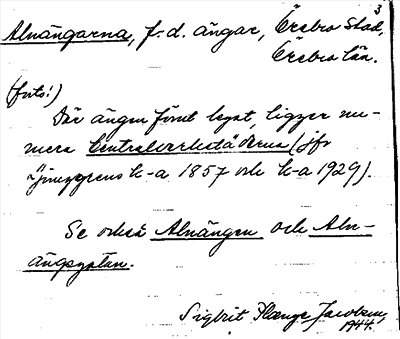 Alnängarna, f. d. ängar, Örebro Stad,
3
Örebro län.
(forts.)
Där ängen förut legat, ligger nu-
mera Centralverkstäderna (jfr
Ljunggrens k-a 1857 och k-a 1929).
Se också Alnängen och Aln-
ängsgatan.
Sigbrit Plænge Jacobson,
1944.